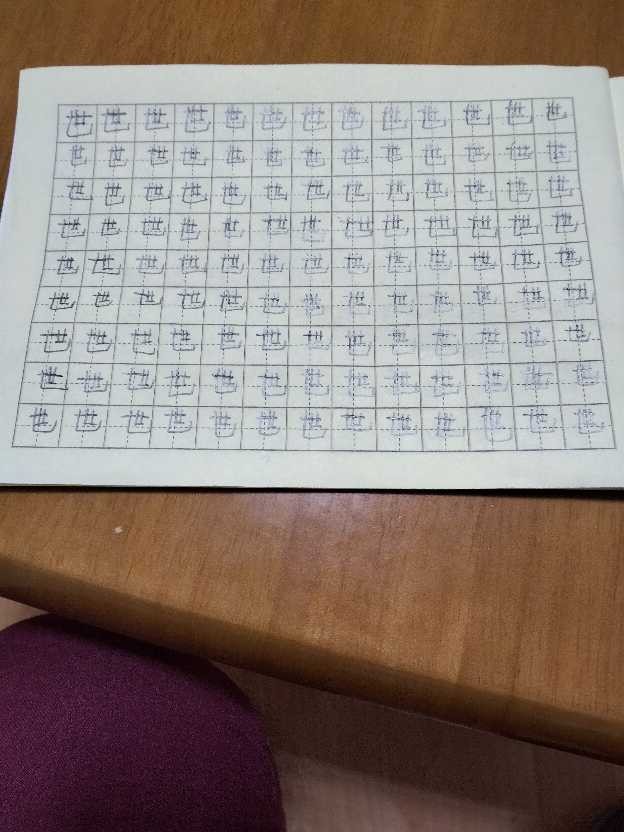 世世世世世世世世世世世世世
世世世世世世世世世世世世世
世世世世世世世世世世世世世
世世世世世世世世世世世世世
世世世世世世世世世世世世世
世世世世世世世世世世世世世
世世世世世世世世世世世世世
世世世世世世世世世世世世世
世世世世世世世世世世世世世